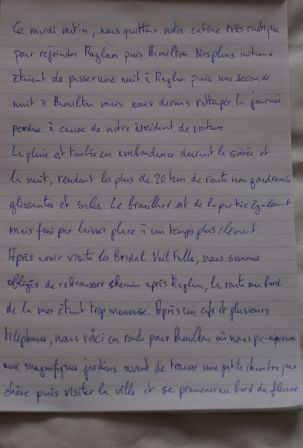 Ce mardi matin, nous quittons notre cabine très rustique
pour rejoindre Raglan puis Hamilton. Nos plans initiaux
étaient de passer une nuit à Raglan puis une seconde
nuit à Hamilton mais nous devons rattraper la journée
perdue à cause de notre incident de voiture.
La pluie est tombée en embondance durant la soirée et
la nuit, rendant les plus de 20 km de route non goudronnée
glissantes et sales. Le brouillard est de la partie également
mais fini par laisser place à un temps plus clément.
Après avoir visité les Bridal Veil Falls, nous sommes
obligés de rebrousser chemin après Raglan, la route au bord
de la mer étant trop mauvaise. Après un café et plusieurs
téléphones, nous voici en route pour Hamilton où nous pic-niquerons
aux magnifiques jardins avant de trouver une petite chambre pas
chère puis visiter la ville et se promener au bord du fleuve